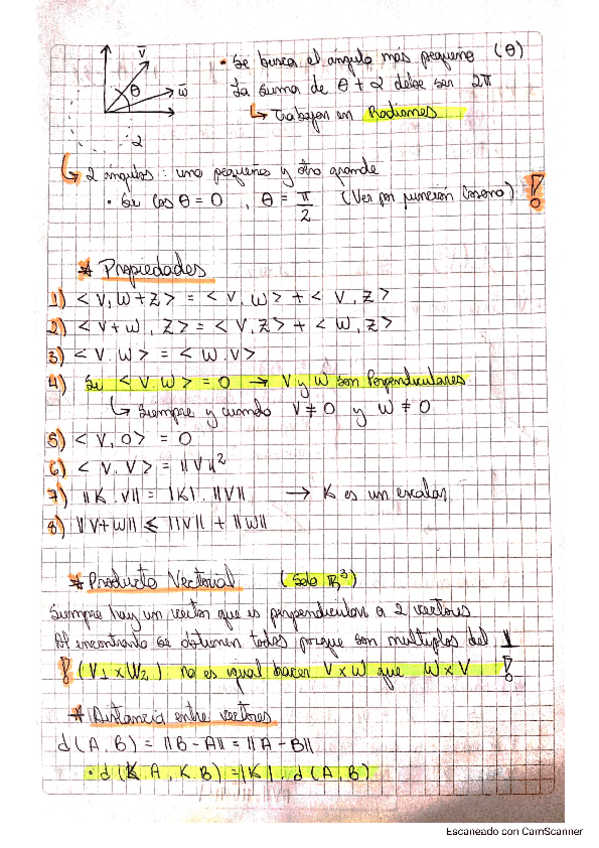 V
θ
w
2
• Se busca el ángulo más pequeño (θ)
La suma de θ + 2 debe ser 2π
↳ Trabajar en Radianes
↳ 2 ángulos: uno pequeño y otro grande
• Si Cos θ = 0 , θ = π/2 (Ver por función Coseno) !
* Propiedades
1) < V, W + Z > = < V, W > + < V, Z >
2) < V + W, Z > = < V, Z > + < W, Z >
3) < V. W > = < W. V >
4) Si < V. W > = 0 → V y W son Perpendiculares
↳ Siempre y cuando V ≠ 0 y W ≠ 0
5) < V, 0 > = 0
6) < V. V > = ||V||²
7) ||K. V|| = |K|. ||V|| → K es un escalar
8) ||V+W|| ≤ ||V|| + ||W||
* Producto Vectorial (Solo R³)
Siempre hay un vector que es perpendicular a 2 vectores
Al encontrarlo se obtienen todos porque son multiplos del 1
! (V₁ x W₂) no es igual hacer V x W que W x V !
* Distancia entre vectores
d(A, B) = ||B - A|| = ||A - B||
• d(K. A, K. B) = |K|. d(A, B)
Escaneado con CamScanner